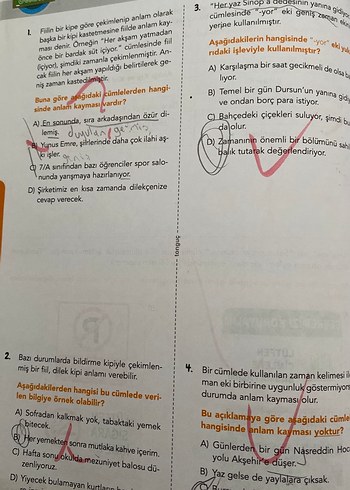 1. Fiilin bir kipe göre çekimlenip anlam olarak
başka bir kipi kastetmesine fiilde anlam kay-
ması denir. Örneğin "Her akşam yatmadan
önce bir bardak süt içiyor." cümlesinde fiil
(içiyor), şimdiki zamanla çekimlenmiştir. An-
cak fiilin her akşam yapıldığı belirtilerek ge-
niş zaman kastedilmiştir.
Buna göre aşağıdaki cümlelerden hangi-
sinde anlam kayması vardır?
A) En sonunda, sıra arkadaşından özür di-
lemiş.
B) Yunus Emre, şiirlerinde daha çok ilahi aş-
kı işler.
C) 7/A sınıfından bazı öğrenciler spor salo-
nunda yarışmaya hazırlanıyor.
D) Şirketimiz en kısa zamanda dilekçenize
cevap verecek.
2. Bazı durumlarda bildirme kipiyle çekimlen-
miş bir fiil, dilek kipi anlamı verebilir.
Aşağıdakilerden hangisi bu cümlede veri-
len bilgiye örnek olabilir?
A) Sofradan kalkmak yok, tabaktaki yemek
bitecek.
B) Her yemekten sonra mutlaka kahve içerim.
C) Hafta sonu okulda mezuniyet balosu dü-
zenliyoruz.
D) Yiyecek bulamayan kurtların
tonguç
3. "Her yaz Sinop'a dedesinin yanına gidiyor
cümlesinde "-yor" eki geniş zaman
yerine kullanılmıştır.
Aşağıdakilerin hangisinde "-yor" eki
rıdaki işleviyle kullanılmıştır?
A) Karşılaşma bir saat gecikmeli de olsa
lıyor.
B) Temel bir gün Dursun'un yanına
ve ondan borç para istiyor.
C) Bahçedeki çiçekleri suluyor, şimdi
da olur.
D) Zamanının önemli bir bölümünü
balık tutarak değerlendiriyor.
4. Bir cümlede kullanılan zaman kelimesi
man eki birbirine uygunluk göstermiyor
durumda anlam kayması olur.
Bu açıklamaya göre aşağıdaki
hangisinde anlam kayması yoktur?
A) Günlerden bir gün Nasreddin
yolu Akşehir'e düşer.
B) Yaz gelse de yaylalara çıksak.